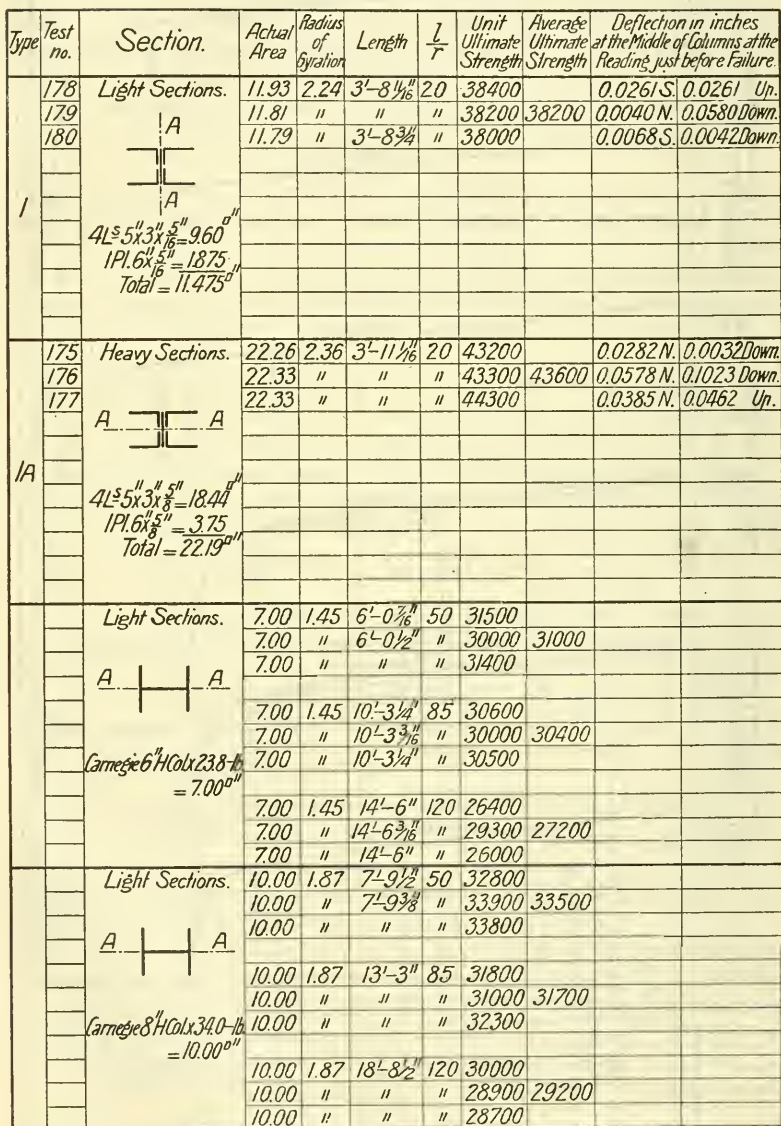 Type Test no. Section. Actual Area Radius of Gyration Length l/r Unit Ultimate Strength Average Ultimate Strength Deflection in inches at the Middle of Columns at the Reading just before Failure.
178 Light Sections. 11.93 2.24 3'-8 11/16" 20 38400 0.0261 S. 0.0261 Up.
179 11.81 " " " 38200 38200 0.0040 N. 0.0580 Down.
180 11.79 " 3'-8 3/4" " 38000 0.0068 S. 0.0042 Down.
A
A
1
4Ls 5"x3"x5/16"=9.60□"
1Pl.6"x5/16"=1.875
Total=11.475□"
175 Heavy Sections. 22.26 2.36 3'-11 1/16" 20 43200 0.0282 N. 0.0032 Down.
176 22.33 " " " 43300 43600 0.0578 N. 0.1023 Down.
177 22.33 " " " 44300 0.0385 N. 0.0462 Up.
A A
1A
4Ls 5"x3"x5/8"=18.44□"
1Pl.6"x5/8"=3.75
Total=22.19□"
Light Sections. 7.00 1.45 6'-0 7/16" 50 31500
7.00 " 6'-0 1/2" " 30000 31000
7.00 " " " 31400
A A
7.00 1.45 10'-3 1/4" 85 30600
7.00 " 10'-3 3/16" " 30000 30400
Carnegie 6"H Col.x23.8-lb. 7.00 " 10'-3 1/4" " 30500
=7.00□"
7.00 1.45 14'-6" 120 26400
7.00 " 14'-6 3/16" " 29300 27200
7.00 " 14'-6" " 26000
Light Sections. 10.00 1.87 7'-9 1/2" 50 32800
10.00 " 7'-9 3/8" " 33900 33500
10.00 " " " 33800
A A
10.00 1.87 13'-3" 85 31800
10.00 " " " 31000 31700
Carnegie 8"H Col.x34.0-lb. 10.00 " " " 32300
=10.00□"
10.00 1.87 18'-8 1/2" 120 30000
10.00 " " " 28900 29200
10.00 " " " 28700